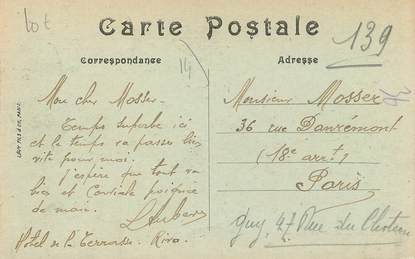 Lot
139
Carte Postale
Correspondance
Adresse
14
Mon cher Mosser.
Temps superbe ici
et le temps va passer bien
vite pour moi.
J'espère que tout va
bien et Cordiale poignée
de main.
Hotel de la Terrasse. Riva.
Monsieur Mosser
36 rue Danrémont
(18e arrt)
Paris
47 Rue du
LEVY FILS & CIE, PARIS